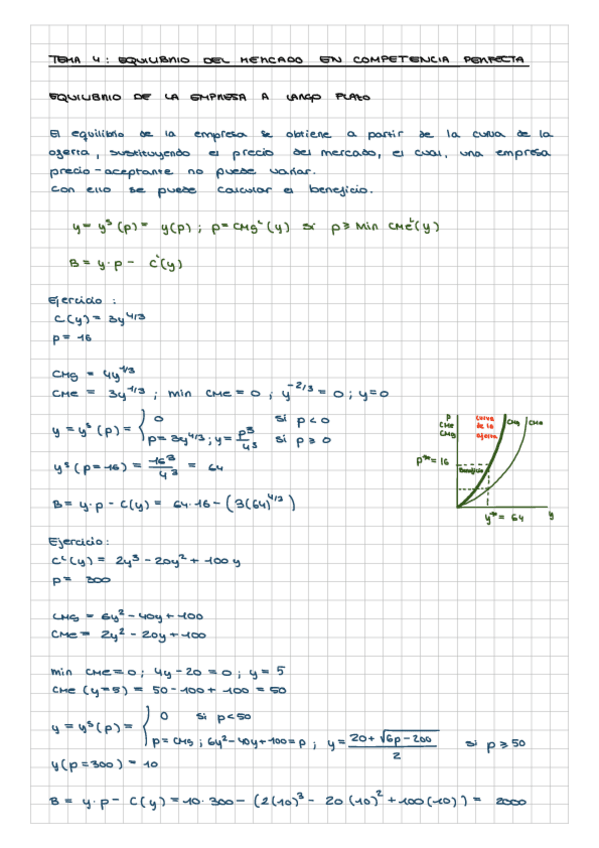 TEMA 4: EQUILIBRIO DEL MERCADO EN COMPETENCIA PERFECTA
EQUILIBRIO DE LA EMPRESA A LARGO PLAZO
El equilibrio de la empresa se obtiene a partir de la curva de la
oferta, sustituyendo el precio del mercado, el cual, una empresa
precio-aceptante no puede variar.
Con ello se puede calcular el beneficio.
y = yˢ(p) = y(p) ; p = CMgᴸ(y) si p ≥ Min CMeᴸ(y)
B = y·p - Cᴸ(y)
Ejercicio :
C(y) = 3y^4/3
p = 16
CMg = 4y^1/3
CMe = 3y^1/3 ; min CMe = 0 ; y^-2/3 = 0 ; y = 0
y = yˢ(p) = { 0 si p < 0
p = 3y^4/3 ; y = p³/4³ si p ≥ 0
yˢ(p = 16) = 16³/4³ = 64
B = y·p - C(y) = 64·16 - (3(64)^4/3)
p
CMe
CMg
curva
de la
oferta
CMg
CMe
p** = 16
Beneficio
y** = 64
y
Ejercicio :
Cᴸ(y) = 2y³ - 20y² + 100y
p = 300
CMg = 6y² - 40y + 100
CMe = 2y² - 20y + 100
min CMe = 0 ; 4y - 20 = 0 ; y = 5
CMe (y = 5) = 50 - 100 + 100 = 50
y = yˢ(p) = { 0 si p < 50
p = CMg ; 6y² - 40y + 100 = p ; y = 20 + √6p - 200 / 2 si p ≥ 50
y(p = 300) = 10
B = y·p - C(y) = 10·300 - (2(10)³ - 20(10)² + 100(10)) = 2000